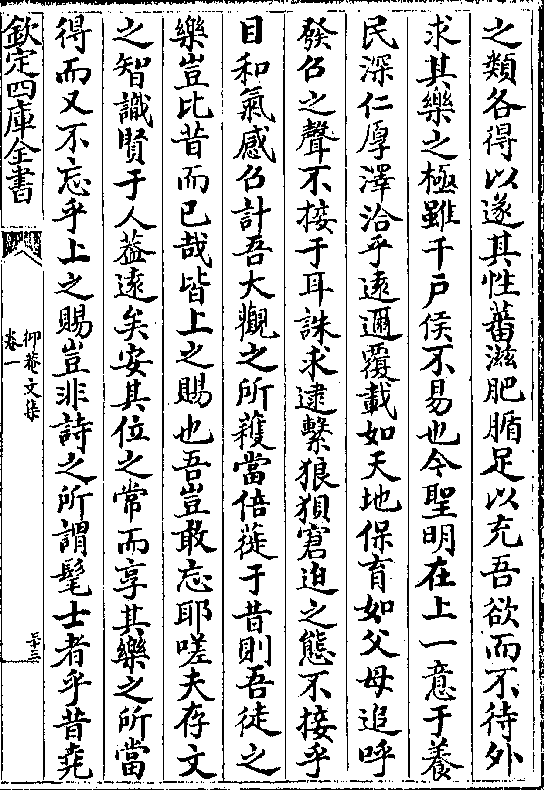 之類各得以遂其性蕃滋肥腯足以充吾欲而不待外
求其樂之極雖千戶侯不易也今聖明在上一意于養
民深仁厚澤洽乎遠邇覆載如天地保育如父母追呼
發召之聲不接于耳誅求逮繫狼狽窘迫之態不接乎
目和氣感召計吾大觀之所穫當倍蓰于昔則吾徒之
樂豈比昔而已哉皆上之賜也吾豈敢忘耶嗟夫存文
之智識賢于人葢遠矣安其位之常而享其樂之所當
得而又不忘乎上之賜豈非詩之所謂髦士者乎昔堯
欽定四庫全書
抑菴文集
卷一
三十三